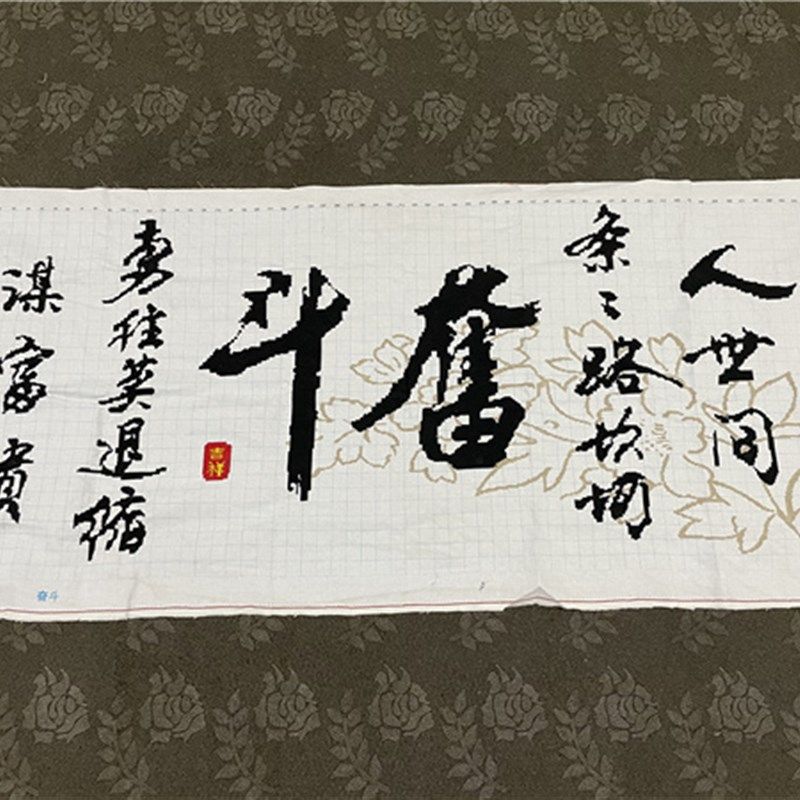 人世间
条々路坎坷
奮斗
吉祥
勇往莫退缩
谋富贵
奋斗